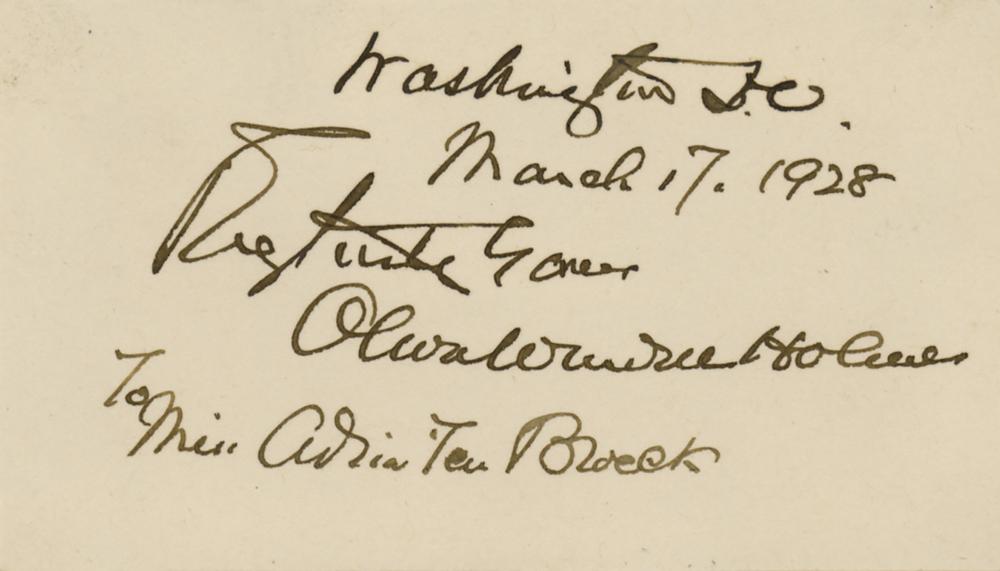 Washington D.C.
March 17. 1928
Respectfully Yours
Oliver Wendell Holmes
To
Miss Adria Ten Broeck